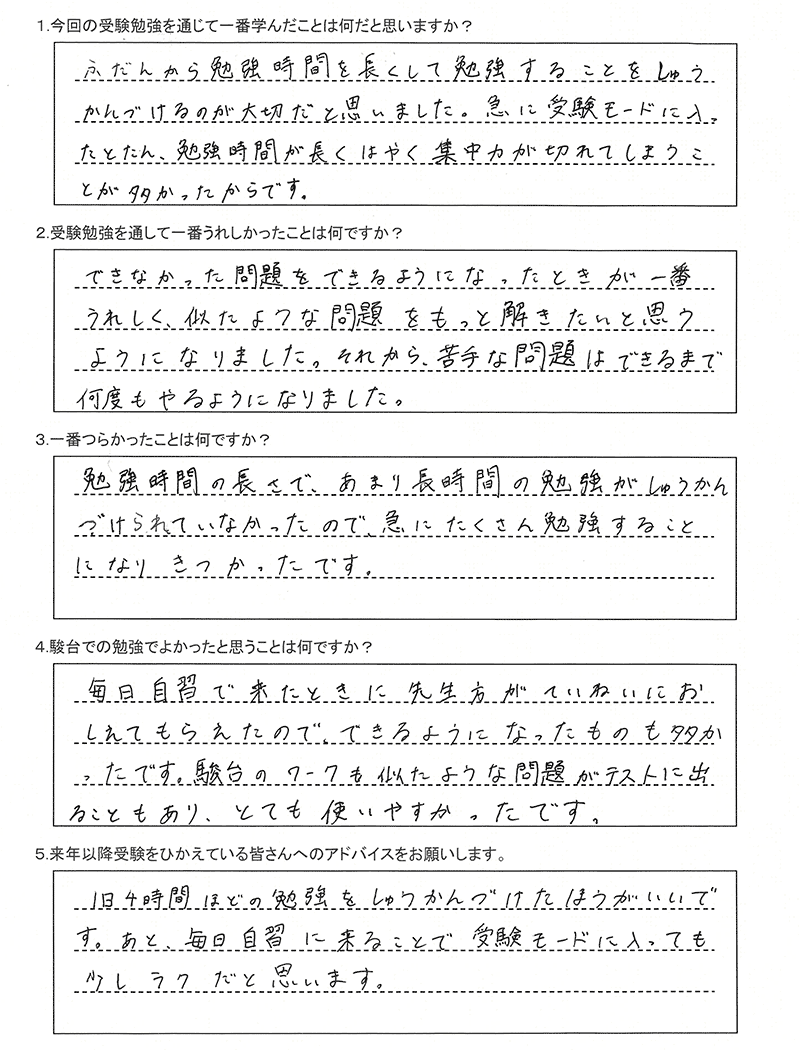 1.今回の受験勉強を通じて一番学んだことは何だと思いますか？
ふだんから勉強時間を長くして勉強することをしゅう
かんづけるのが大切だと思いました。急に受験モードに入っ
たとたん、勉強時間が長くはやく集中力が切れてしまうこ
とが多かったからです。
2.受験勉強を通して一番うれしかったことは何ですか？
できなかった問題をできるようになったときが一番
うれしく、似たような問題をもっと解きたいと思う
ようになりました。それから、苦手な問題はできるまで
何度もやるようになりました。
3.一番つらかったことは何ですか？
勉強時間の長さで、あまり長時間の勉強がしゅうかん
づけられていなかったので、急にたくさん勉強すること
になりきつかったです。
4.駿台での勉強でよかったと思うことは何ですか？
毎日自習で来たときに先生方がていねいにお
しえてもらえたので、できるようになったものも多か
ったです。駿台のワークも似たような問題がテストに出
ることもあり、とても使いやすかったです。
5.来年以降受験をひかえている皆さんへのアドバイスをお願いします。
1日4時間ほどの勉強をしゅうかんづけたほうがいいで
す。あと、毎日自習に来ることで受験モードに入っても
少しラクだと思います。